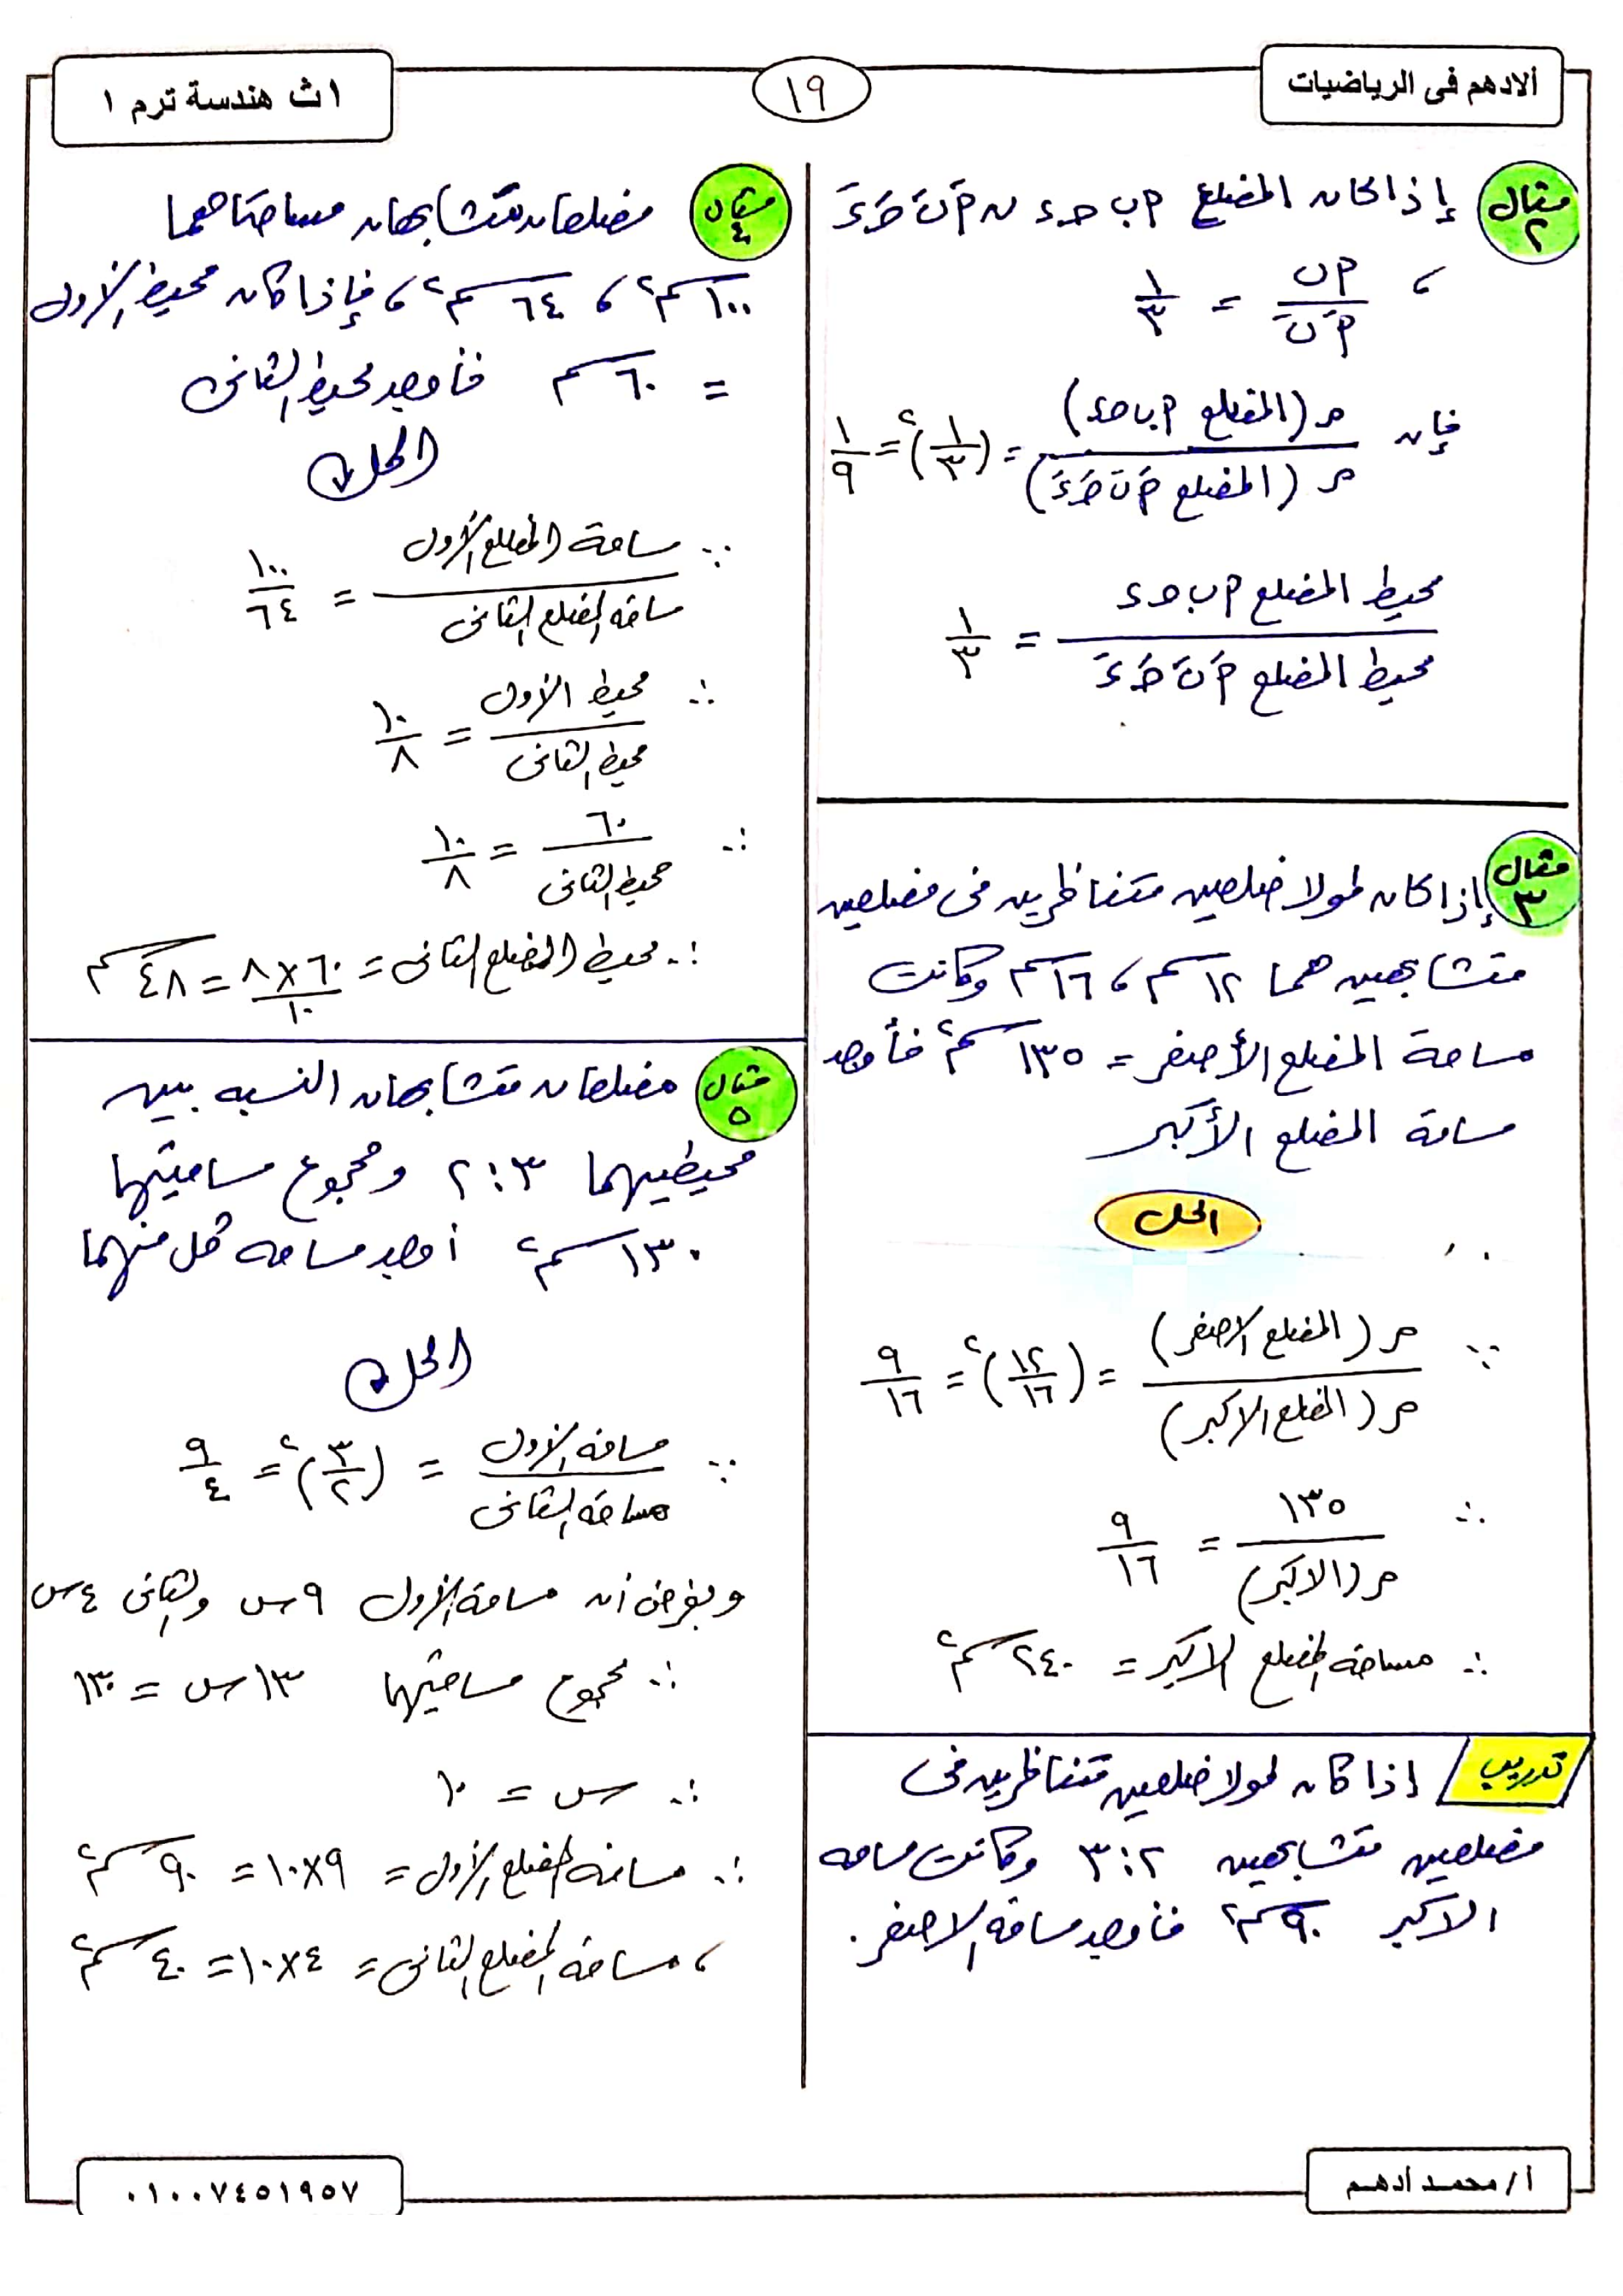 ألادهم فى الرياضيات
١٩
١ث هندسة ترم ١
مثال ٢
إذا كان المضلع P ب حـ ء ~ Pَ بَ حـَ ءَ
، P ب / Pَ بَ = ١/٣
فإن م (المضلع P ب حـ ء) / م (المضلع Pَ بَ حـَ ءَ) = (١/٣)² = ١/٩
محيط المضلع P ب حـ ء / محيط المضلع Pَ بَ حـَ ءَ = ١/٣
مثال ٣
إذا كان طولا ضلعين متناظرين فى مضلعين
متشابهين هما ١٢ سم ، ١٦ سم وكانت
مساحة المضلع الأصغر = ١٣٥ سم² فأوجد
مساحة المضلع الأكبر
الحل
∵ م (المضلع الاصغر) / م (المضلع الاكبر) = (١٢/١٦)² = ٩/١٦
∴ ١٣٥ / م (الاكبر) = ٩/١٦
∴ مساحة المضلع الاكبر = ٢٤٠ سم²
تدريب
إذا كان طولا ضلعين متناظرين فى
مضلعين متشابهين ٢ : ٣ وكانت مساحة
الاكبر ٩٠ سم² فأوجد مساحة الاصغر .
مثال ٤
مضلعان متشابهان مساحتاهما
١٠٠ سم² ، ٦٤ سم² ، فإذا كان محيط الأول
= ٦٠ سم فأوجد محيط الثانى
الحل
∵ مساحة المضلع الأول / مساحة المضلع الثانى = ١٠٠/٦٤
∴ محيط الأول / محيط الثانى = ١٠/٨
∴ ٦٠ / محيط الثانى = ١٠/٨
∴ محيط المضلع الثانى = ٦٠×٨ / ١٠ = ٤٨ سم
مثال ٥
مضلعان متشابهان النسبه بين
محيطيهما ٣ : ٢ ومجموع مساحتيهما
١٣٠ سم² أوجد مساحه كل منهما
الحل
∵ مساحة الأول / مساحة الثانى = (٣/٢)² = ٩/٤
وبفرض أن مساحة الأول ٩ س والثانى ٤ س
∴ مجموع مساحتيهما ١٣ س = ١٣٠
∴ س = ١٠
∴ مساحة المضلع الأول = ٩×١٠ = ٩٠ سم²
، مساحة المضلع الثانى = ٤×١٠ = ٤٠ سم²
أ/ محمد أدهم
٠١٠٠٧٤٥١٩٥٧